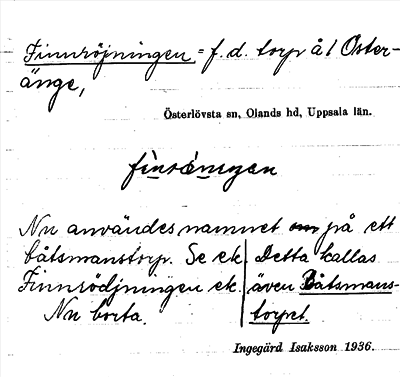 Finnröjningen, = f. d. torp å 1 Öster-
änge,
Österlövsta sn, Olands hd, Uppsala län.
Nu användes namnet på ett
båtsmanstorp. Se ek. Detta kallas
Finnrödjningen ek. även Båtsmans-
Nu borta. torpet.
Ingegärd Isaksson 1936.